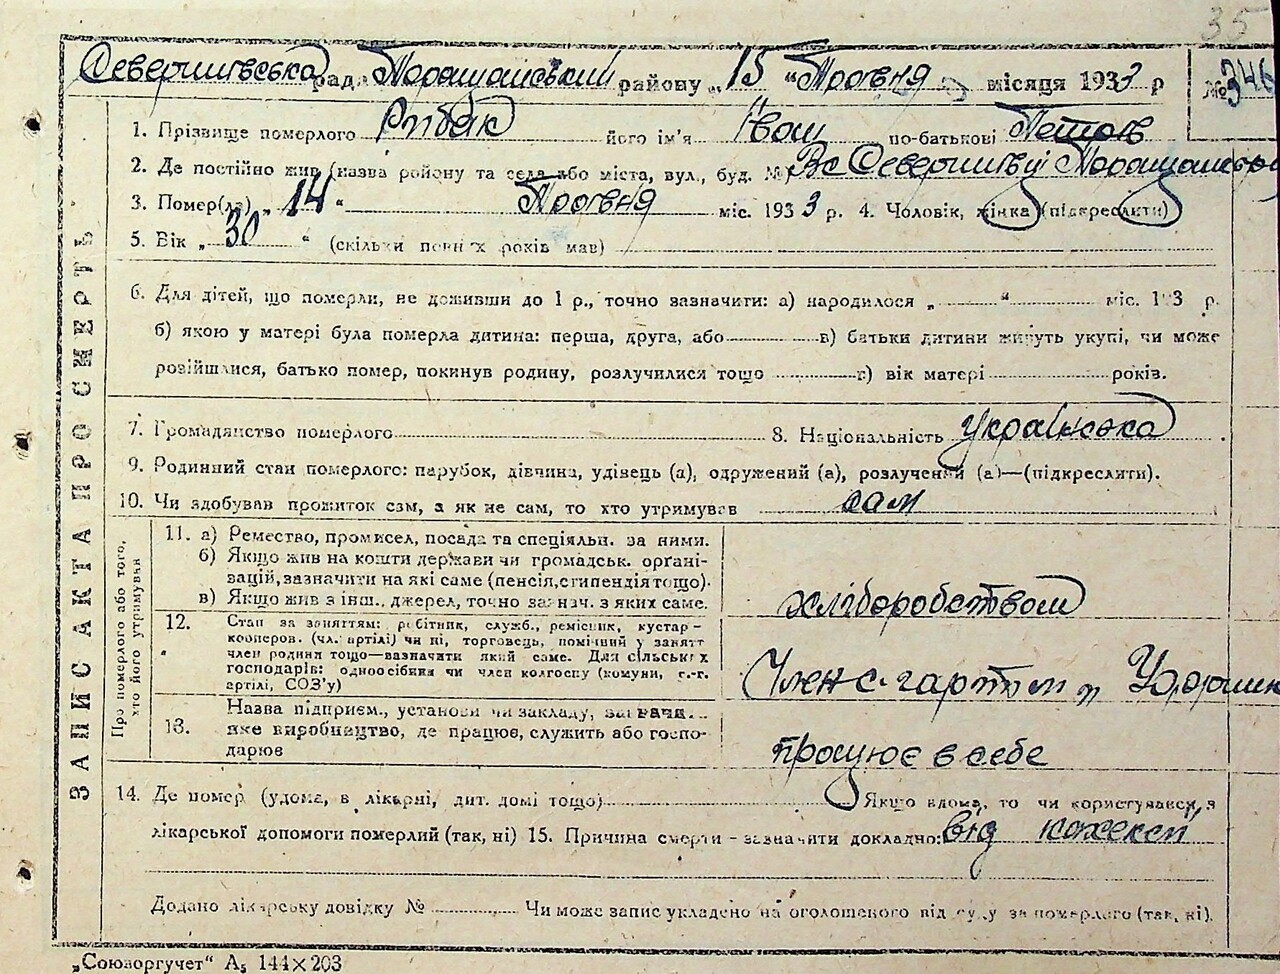 35
Севериньська рада Таращанський району „15 “ Травня місяця 1933 р № 346
1. Прізвище померлого Рибак його ім'я Іван по-батькові Петров
2. Де постійно жив (назва району та села або міста, вул., буд. №) Вс Таращанськ
3. Помер(ла) „ 14 “ Травня міс. 193 3 р. 4. Чоловік, жінка (підкреслити)
5. Вік „ 30 “ (скільки повних років мав)
6. Для дітей, що померли, не доживши до 1 р., точно зазначити: а) народилося „ “ міс. 193 р.
б) якою у матері була померла дитина: перша, друга, або в) батьки дитини живуть укупі, чи може
розійшлися, батько помер, покинув родину, розлучилися тощо г) вік матері років.
7. Громадянство померлого 8. Національність українська
9. Родинний стан померлого: парубок, дівчина, удівець (а), одружений (а), розлучений (а)—(підкреслити).
10. Чи здобував прожиток сам, а як не сам, то хто утримував сам
ЗАПИС АКТА ПРО СМЕРТЬ
Про померлого або того,
хто його утримував
11. а) Ремество, промисел, посада та спеціяльн. за ними.
б) Якщо жив на кошти держави чи громадськ. орґані-
зацій, зазначити на які саме (пенсія, стипендія тощо).
в) Якщо жив з інш., джерел, точно зазнач. з яких саме.
хліборобством
12. Стан за заняттям: робітник, служб., ремісник, кустар-
кооперов. (чл. артілі) чи ні, торговець, помічний у занятт
член родини тощо—вазначити який саме. Для сільських
господарів: одноосібник чи член колгоспу (комуни, с.-г.
артілі, СОЗ'у)
Член с-г артіли
13. Назва підприєм., установи чи закладу, зазнач.
яке виробництво, де працює, служить або госпо-
дарює
працює в себе
14. Де помер (удома, в лікарні, дит. домі тощо) Якщо вдома, то чи користувався з
лікарської допомоги померлий (так, ні) 15. Причина смерти – зазначити докладно: від кахексії
Додано лікарську довідку № Чи може запис укладено на оголошеного від суду за померлого (так, ні).
„Союзоргучет“ А₅ 144×203